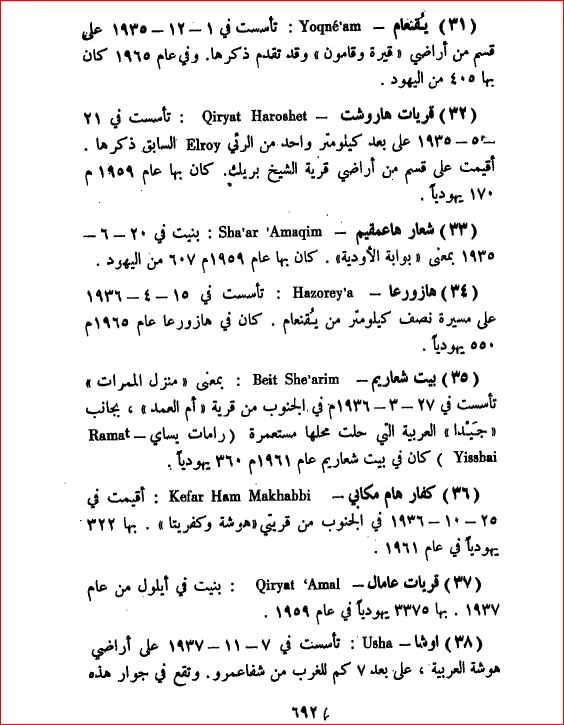 (٣١) يُقنعام – Yoqné'am : تأسست في ١ – ١٢ – ١٩٣٥ على
قسم من أراضي « قيرة وقامون » وقد تقدم ذكرها. وفي عام ١٩٦٥ كان
بها ٤٠٥ من اليهود .
(٣٢) قريات هاروشت – Qiryat Haroshet : تأسست في ٢١
– ٥ – ١٩٣٥ على بعد كيلومتر واحد من الرئي Elroy السابق ذكرها .
أقيمت على قسم من أراضي قرية الشيخ بريك. كان بها عام ١٩٥٩ م
١٧٠ يهودياً .
(٣٣) شعار هاعمقيم – Sha'ar 'Amaqim : بنيت في ٢٠ – ٦ –
١٩٣٥ بمعنى « بوابة الأودية» . كان بها عام ١٩٥٩م ٦٠٧ من اليهود .
(٣٤) هازورعا – Hazorey'a : تأسست في ١٥ – ٤ – ١٩٣٦
على مسيرة نصف كيلومتر من يُقنعام . كان في هازورعا عام ١٩٦٥م
٥٥٠ يهودياً .
(٣٥) بيت شعاريم – Beit She'arim : بمعنى « منزل الممرات »
تأسست في ٢٧ – ٣ – ١٩٣٦م في الجنوب من قرية « أم العمد » ، بجانب
« جَيْدا » العربية التي حلت محلها مستعمرة ( رامات يساي – Ramat
Yissbai ) كان في بيت شعاريم عام ١٩٦١م ٣٦٠ يهودياً .
(٣٦) كفار هام مكابي – Kefar Ham Makhabbi : أقيمت في
٢٥ – ١٠ – ١٩٣٦ في الجنوب من قريتي «هوشة وكفريتا » . بها ٣٢٢
يهودياً في عام ١٩٦١ .
(٣٧) قريات عامال – Qiryat 'Amal : بنيت في أيلول من عام
١٩٣٧ . بها ٣٣٧٥ يهودياً في عام ١٩٥٩ .
(٣٨) اوشا – Usha : تأسست في ٧ – ١١ – ١٩٣٧ على أراضي
هوشة العربية ، على بعد ٧ كم للغرب من شفاعمرو. وتقع في جوار هذه
٦٩٢